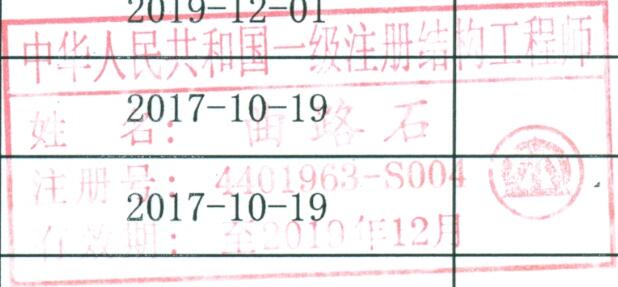 2019-12-01
中华人民共和国一级注册结构工程师
2017-10-19
姓 名: 曲路石
注册号: 4401963-S004
2017-10-19
有效期: 至2019年12月